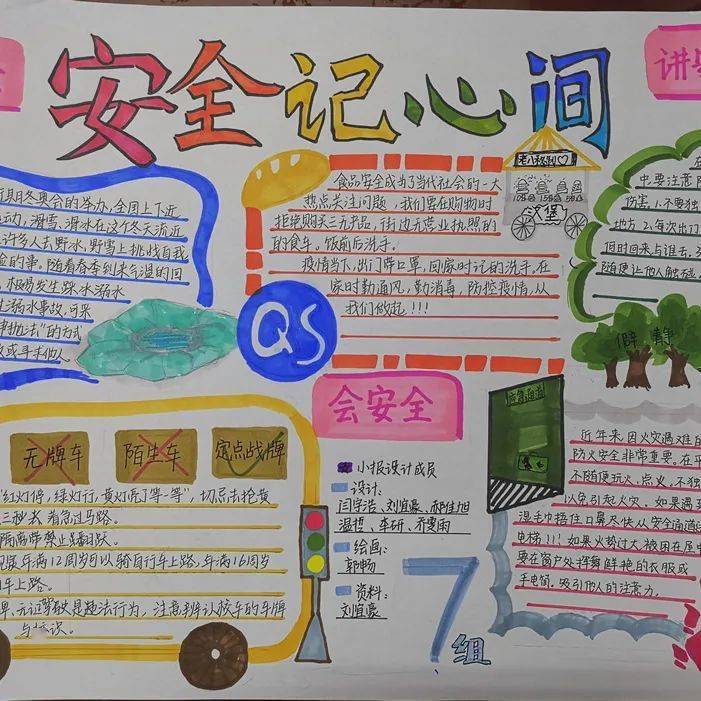 安全记心间
讲
冬奥会的举办,全国上下近
动,滑雪、滑冰在这个冬天流近
许多人去野冰,野雪上挑战自我
险的事。随着春季到来气温的回
极易发生踩冰溺水
生溺水事故,可采
抛法”的方式
或手拉他人
食品安全成为了当代社会的一大
热点关注问题,我们要在购物时
拒绝购买三无产品,街边无营业执照的
的食车。饭前后洗手。
疫情当下,出门带口罩,回家时记的洗手,在
家时勤通风,勤消毒,防控疫情,从
我们做起!!!
QS
汉堡
在
中要注意防
伤害,1.不要独
地方 2、每次出门
何时回来与谁去,3
随便让他人触碰
僻静
会安全
无牌车
陌生车
定点战牌
“红灯停,绿灯行,黄灯亮了等一等”,切忌去抢黄
三秒去着急过马路。
隔离带禁止翻越
年满12周岁可以骑自行车上路,年满16周岁
车上路。
牌、无证驾驶是违法行为,注意辨认校车的车牌
与标识。
小报设计成员
设计:
闫宇浩、刘宜豪、郝佳旭
温哲、车研、乔雯雨
绘画:
郭畅
资料:
刘宜豪
7组
应急通道
近年来,因火灾遇难的
防火安全非常重要。在平
不随便玩火,点火,不独
以免引起火灾。如果遇到
湿毛巾捂住口鼻尽快从安全通道
电梯!!!如果火势过大,被困在屋中
要在窗户处挥舞鲜艳的衣服或
手电筒,吸引他人的注意力。